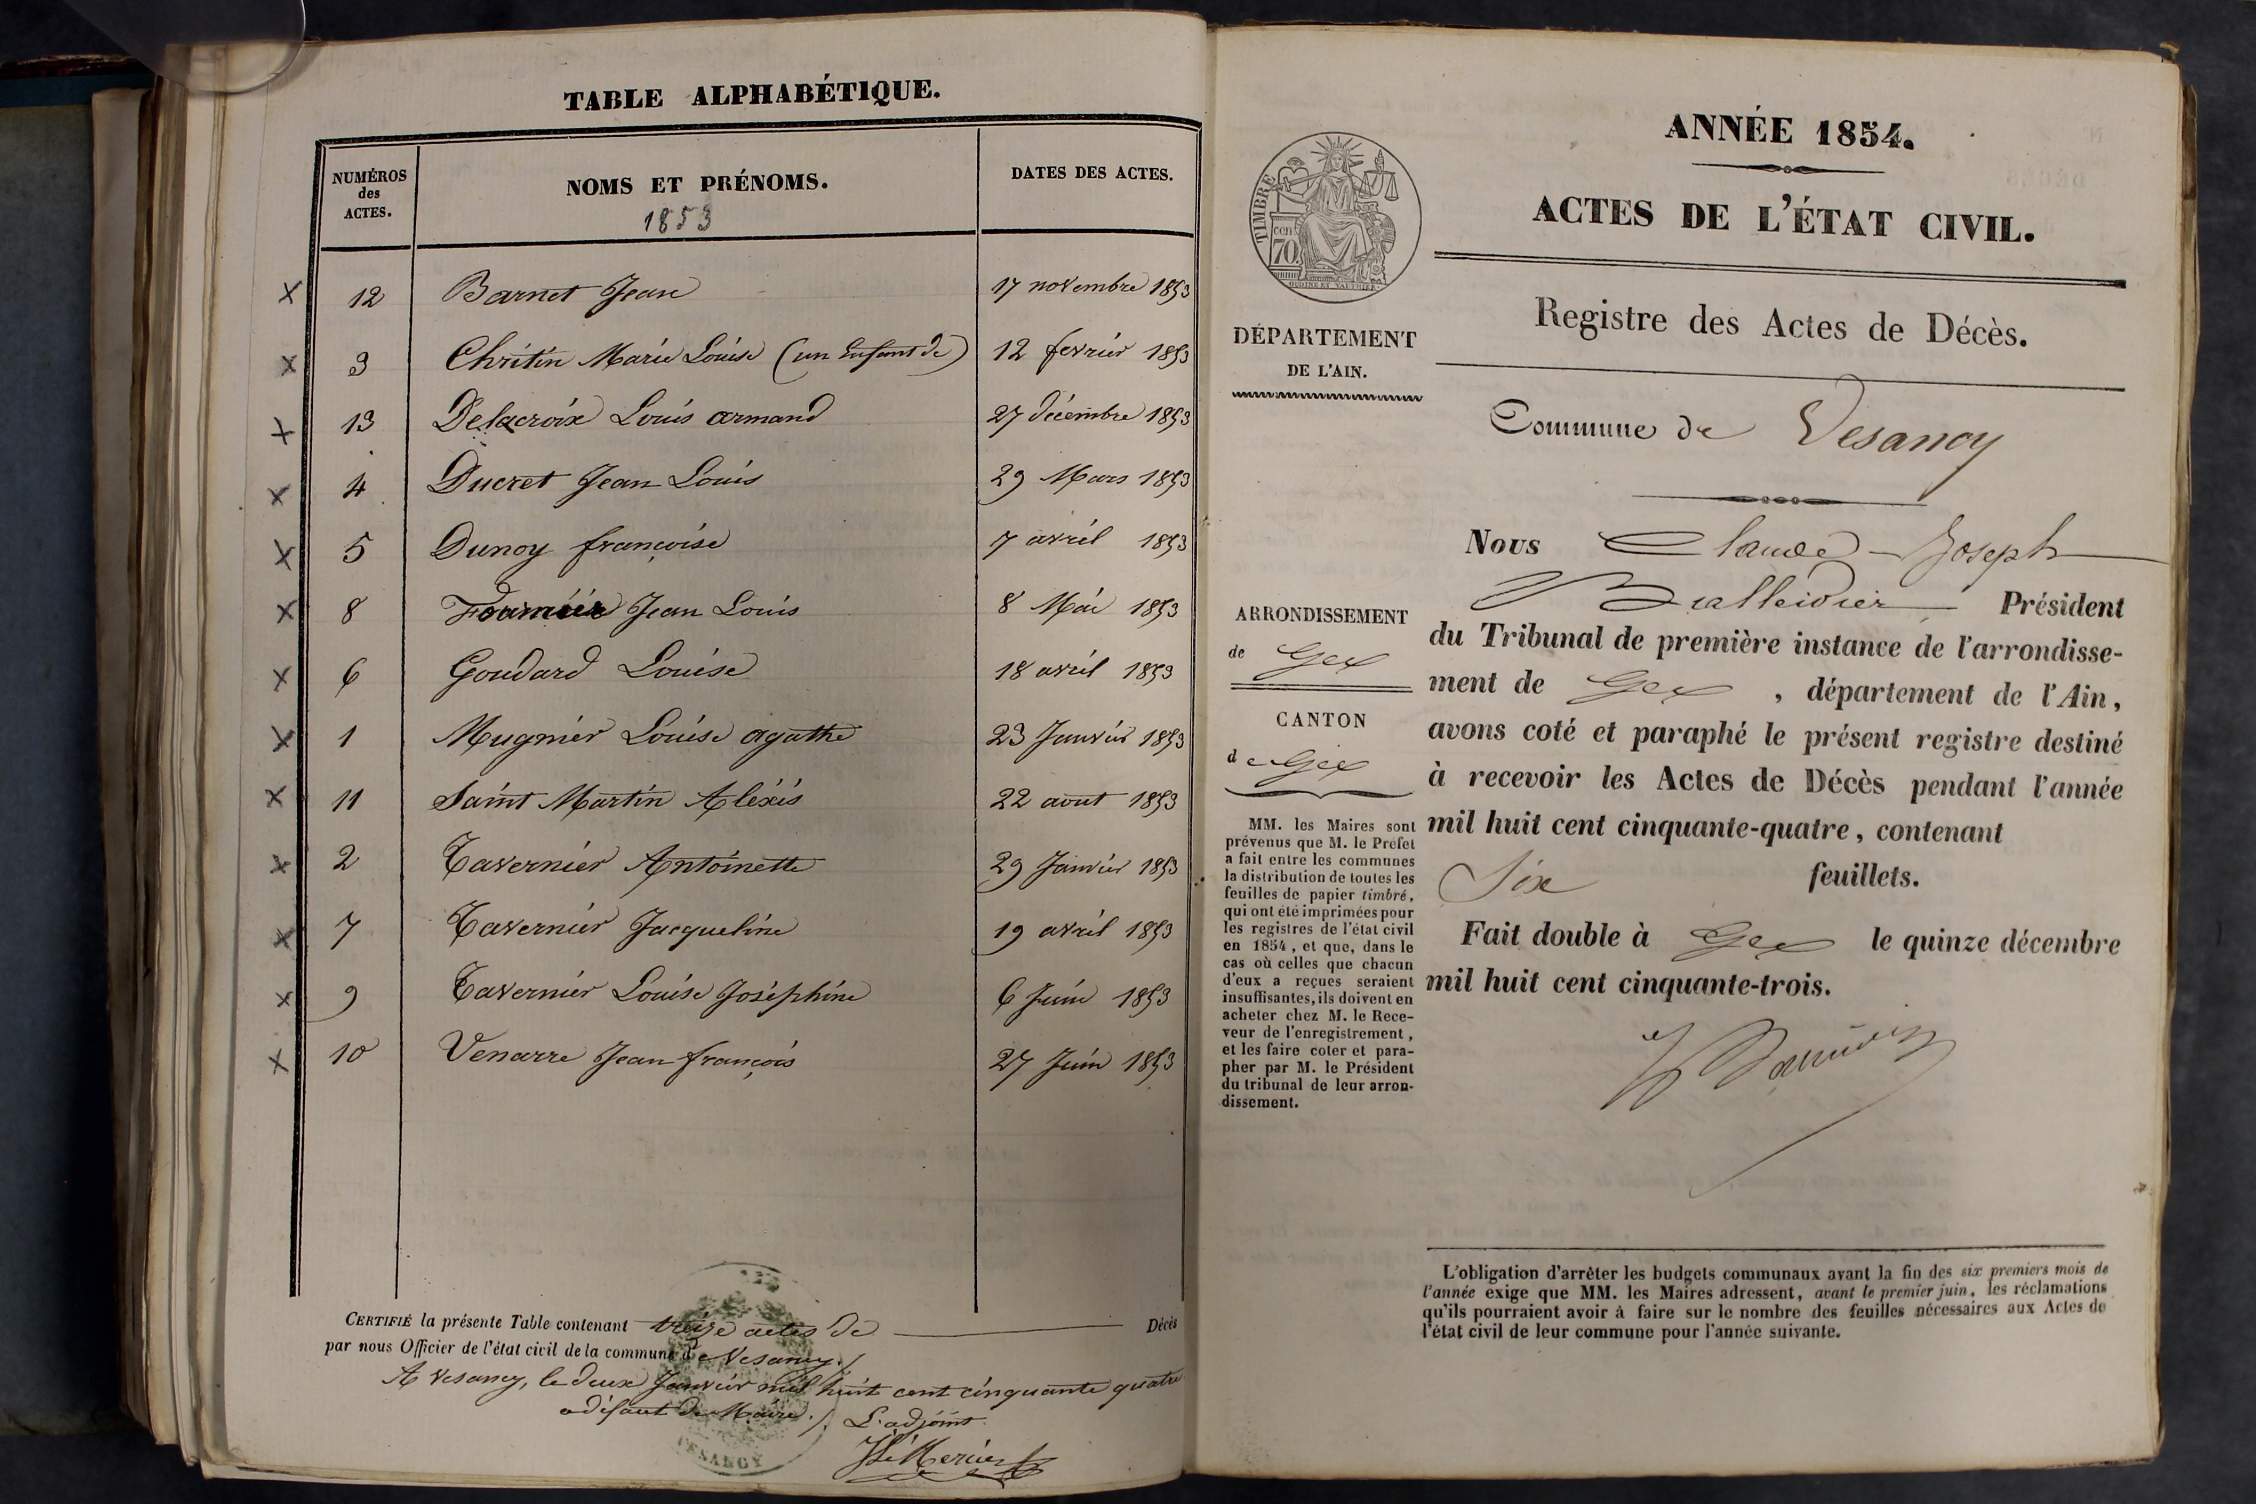 TABLE ALPHABÉTIQUE.
NUMÉROS
des
ACTES.
NOMS ET PRÉNOMS.
1853
DATES DES ACTES.
× 12 Barnet Jean 17 novembre 1853
× 3 Chritin Marie Louise (un Enfant de) 12 fevrier 1853
× 13 Delacroix Louis armand 27 décembre 1853
× 4 Ducret Jean Louis 29 Mars 1853
× 5 Dunoy françoise 7 avril 1853
× 8 Fournier Jean Louis 8 Mai 1853
× 6 Goudard Louise 18 avril 1853
× 1 Mugnier Louise agathe 23 Janvier 1853
× 11 Saint Martin Aléxis 22 aout 1853
× 2 Tavernier Antoinette 29 Janvier 1853
× 7 Tavernier Jacqueline 19 avril 1853
× 9 Tavernier Louise Joséphine 6 Juin 1853
× 10 Venarre Jean françois 27 Juin 1853
CERTIFIÉ la présente Table contenant treize actes de Décès
par nous Officier de l'état civil de la commune de Vesancy./
A Vesancy, le deux Janvier mil huit cent cinquante quatre
a défaut de Maire./. L'adjoint
VESANCY
ANNÉE 1854.
ACTES DE L'ÉTAT CIVIL.
Registre des Actes de Décès.
TIMBRE
70 cen
DÉPARTEMENT
DE L'AIN.
Commune de Vesancy
ARRONDISSEMENT
de Gex
CANTON
de Gex
MM. les Maires sont
prévenus que M. le Préfet
a fait entre les communes
la distribution de toutes les
feuilles de papier timbré,
qui ont été imprimées pour
les registres de l'état civil
en 1854, et que, dans le
cas où celles que chacun
d'eux a reçues seraient
insuffisantes, ils doivent en
acheter chez M. le Rece-
veur de l'enregistrement,
et les faire coter et para-
pher par M. le Président
du tribunal de leur arron-
dissement.
Nous Claude Joseph
Président
du Tribunal de première instance de l'arrondisse-
ment de Gex, département de l'Ain,
avons coté et paraphé le présent registre destiné
à recevoir les Actes de Décès pendant l'année
mil huit cent cinquante-quatre, contenant
Six feuillets.
Fait double à Gex le quinze décembre
mil huit cent cinquante-trois.
L'obligation d'arrêter les budgets communaux avant la fin des six premiers mois de
l'année exige que MM. les Maires adressent, avant le premier juin, les réclamations
qu'ils pourraient avoir à faire sur le nombre des feuilles nécessaires aux Actes de
l'état civil de leur commune pour l'année suivante.